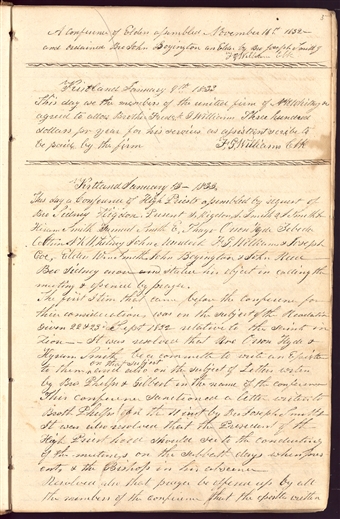 5
A conference of Elders assembled November 16th 1832—
and ordained Bro John Boyington an Elder by Bro Joseph Smith Jr
F G Williams Clk
Kirtland January 8th 1833
This day we the members of the united firm of N K Whitney
agreed to allow Brother Frede. G Williams Three hundred
dollars per year for his servises as assistent scribe to
be paid by the firm F. G Williams Clk
Kirtland January 13— 1833
This day a Conference of High Priests assembled by request of
Bro Sidney Rigdon Present S. Rigdon J Smith Jr J Smith Sr
Hiram Smith Samuel Smith E. Thayr Orson Hyde Zebede
Coltrin N K Whitney John Murdock F G Williams & Joseph
Coe, Elders Wm Smith John Boyington & John Reed
Bro Sidney in stated his object in calling the
meeting & opened by prayer.
The first Item that came before the conferenc for
their considerations was on the subject of the Revelation
Given 22 & 23 Sept 1832 relative to the saints in
Zion— It was resolved that bro Orson Hyde &
Hyrum Smith be a committe to write an Epistle
on that subject
to them and also on the subject of Letters writen
by Bro Phelps & Gilbert in the name of the conference
This conference sanctioned a letter writen to
Broth Phelps of the 11 inst by Bro Joseph Smith Jr
It was also resolved that the President of the
High Priest hood should see to the conducting
of the meetings on the sabbath days when pres
ent, & the Bishop in his absence—
Resolved also that prayer be offered up by all
the members of the conference that the epistle written